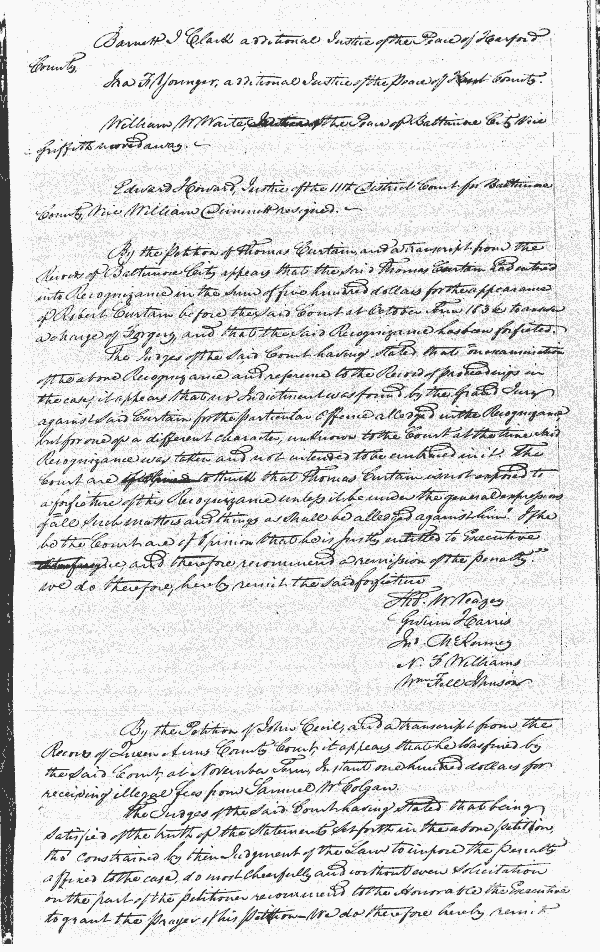 Barnett J Clark additional Justice of the Peace of Harford
County.
Ira F. Younger, additional Justice of the Peace of Kent County.
William W. Waite, Justice of the Peace of Baltimore City Vice
Griffith moved away.
Edward Howard, Justice of the 11th District Court for Baltimore
County, Vice William resigned.
By the Petition of Thomas Curtain, and a transcript from the
Record of Baltimore City appears that the said Thomas Curtain had entered
into Recognizance in the sum of five hundred dollars for the appearance
of Robert Curtain before the said Court at October Term 1836 to answer
a charge of Forgery, and that the said Recognizance has been forfeited.
The Judges of the said Court having stated that "on examination
of the above Recognizance and reference to the Record of proceedings in
the case, it appears that no Indictment was found by the Grand Jury
against said Curtain for the particular offence alledged in the Recognizance
but for one of a different character, unknown to the Court at the time said
Recognizance was taken and not intended to be embraced in it. The
Court are to think that Thomas Curtain is not exposed to
a forfeiture of his Recognizance unless it be under the general expressions
of all such matters and things as shall be alledged against him". If he
be the Court are of Opinion that he is justly entitled to Executive
and therefore recommend a remission of the penalty."
we do therefore, hereby remit the said forfeiture
Tho. W Veazey
Gwinn Harris
Jno. McKenney
N. F Williams
Wm Fell Johnson
By the Petition of John Cecil, and a transcript from the
Record of Queen Anns County Court it appears that he was fined by
the said Court at November Term, Instant one hundred dollars for
receiving illegal fees from Samuel W Colgan.
The Judges of the said Court having stated that being
satisfied of the truth of the statements set forth in the above petition,
tho' constrained by their Judgment of the Law to impose the penalty
affixed to the case, do most cheerfully and without even solicitation
on the part of the petitioner recommend to the Honorable the Executive
to grant the prayer of his Petition - We do therefore hereby remit